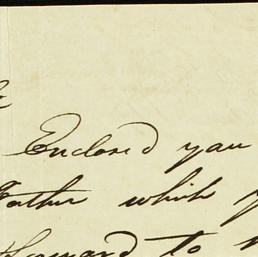 Enclosed you
Father which
forward to